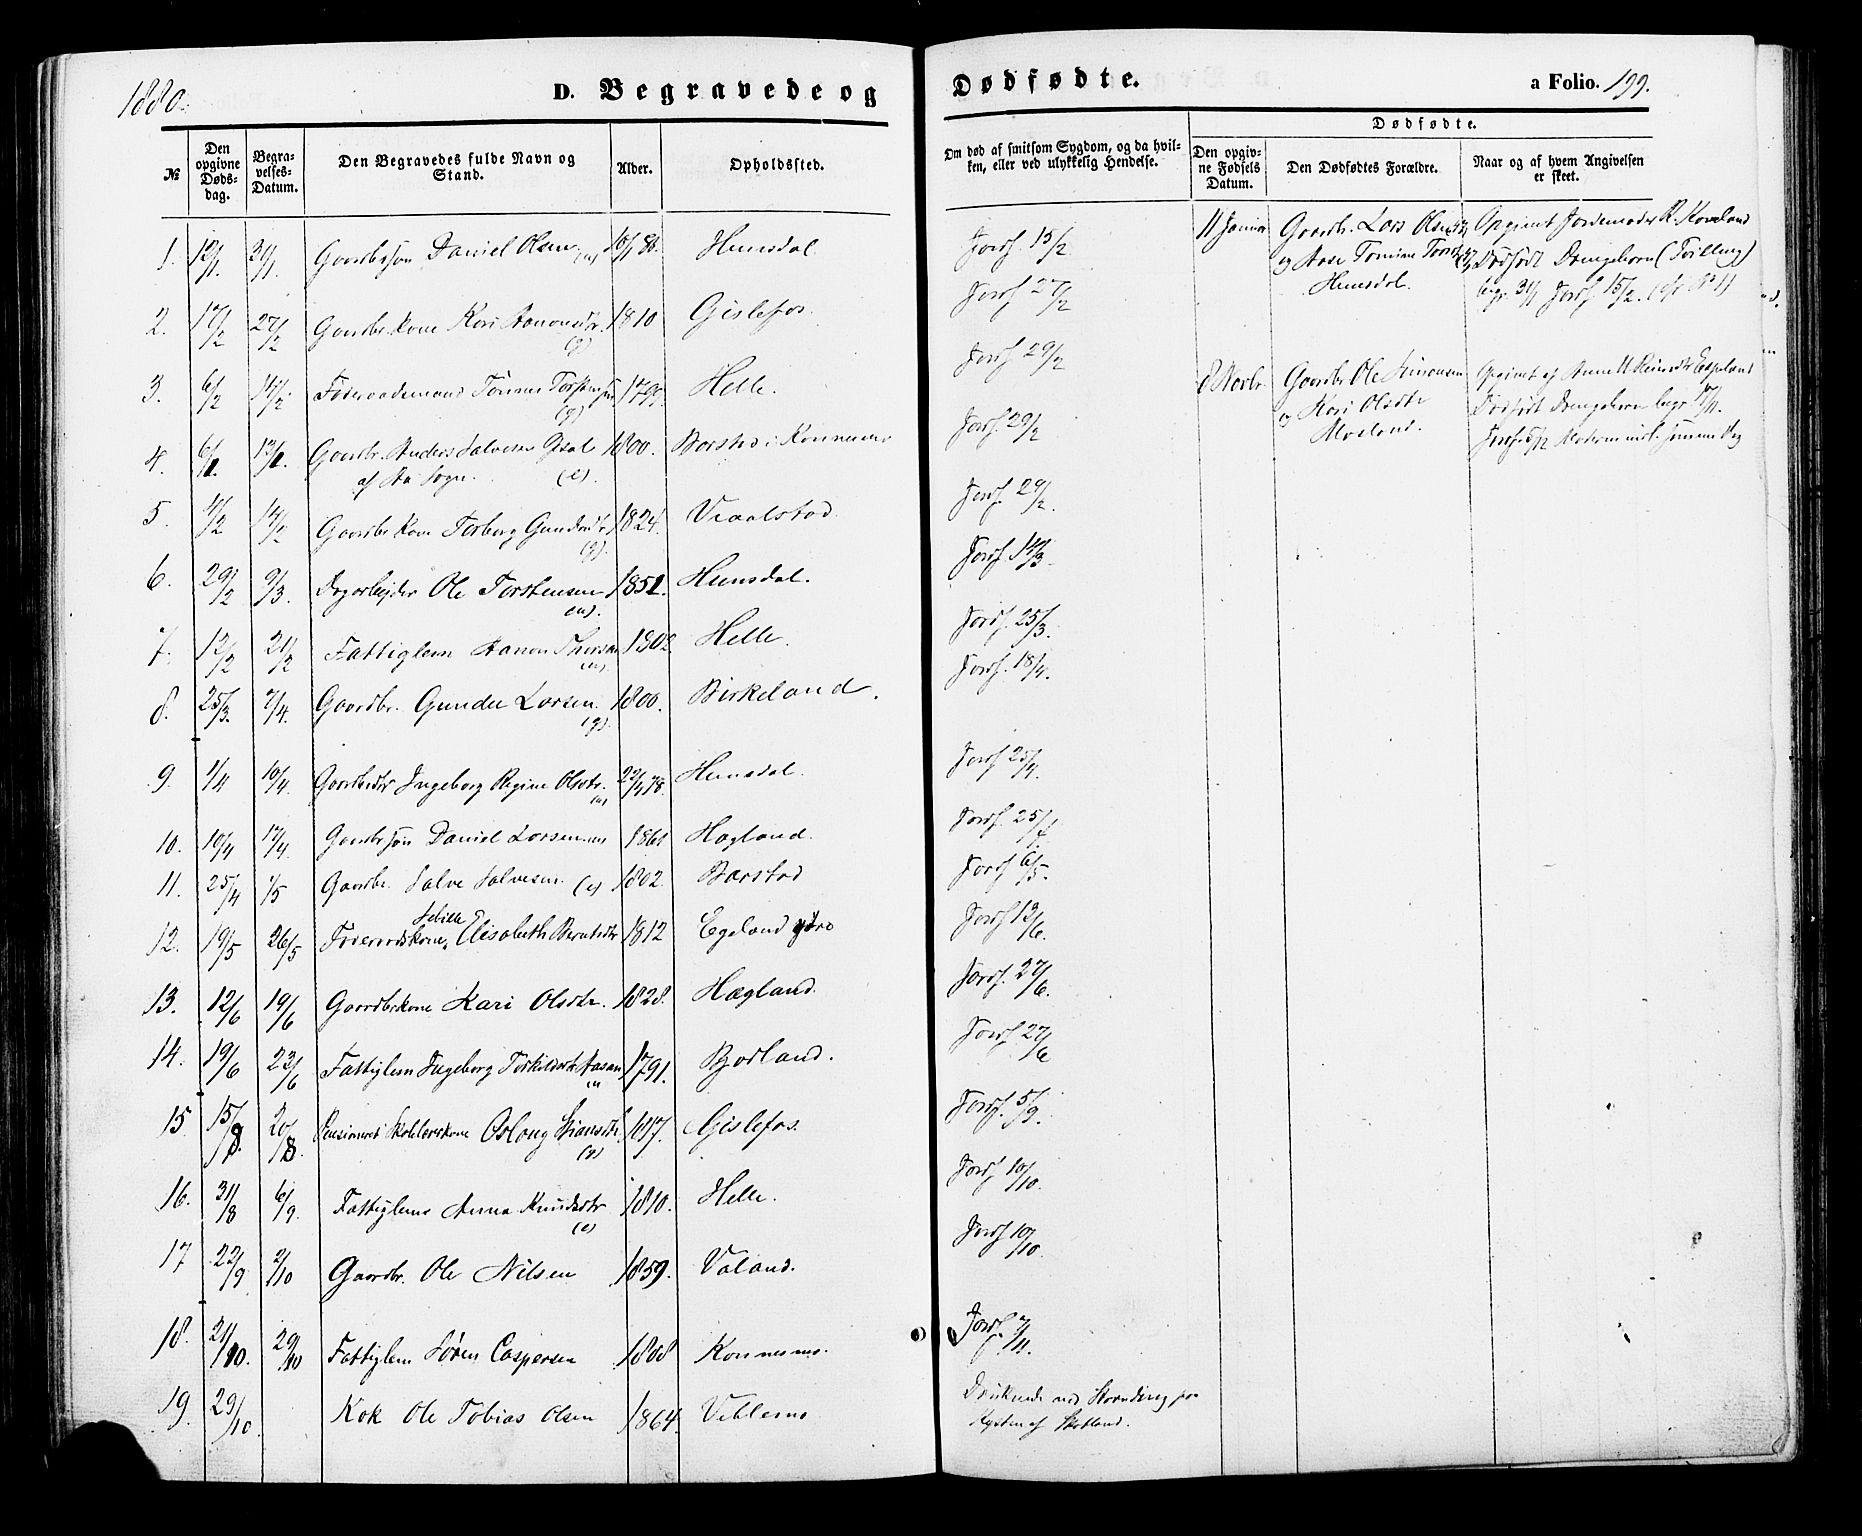 1880.
D. Begravede og Dødfødte.
a Folio. 199.
№
Den opgivne Døds-dag.
Begra-velses-Datum.
Den Begravedes fulde Navn og Stand.
Alder.
Opholdssted.
Om død af smitsom Sygdom, og da hvil-ken, eller ved ulykkelig Hendelse.
Dødfødte.
Den opgiv-ne Fødsels Datum.
Den Dødfødtes Forældre.
Naar og af hvem Angivelsen er skeet.
1. 12/1. 31/1. Gaardbr søn Daniel Olsen (u) Hunsdal. Jordf 15/2
2. 17/2 27/2 Gaardbr kone Kari Aanonsdtr. (g) 1810 Gislefos. Jordf 27/2
3. 6/2 14/2 Føderaadsmand Tønnes (g) 1799. Helle. Jordf 29/2
4. 13/2. Gaardbr. Anders Salvesen 1800. Barstad i Konnesmo Jordf 29/2
af Aa Sogn. (e)
5. 4/2 14/2 Gaardbr kone Torborg (g). 1824. Vraalstad. Jordf 29/2.
6. 29/2 9/3. Dagarbejder Ole Torstensen (u). 1851. Hunsdal. Jordf 14/3.
7. 12/2 21/2 Fattiglem Aanon (u) 1802 Helle. Jordf. 25/3.
8. 25/3. 7/4. Gaardbr. Gunder Larsen. (g). 1800. Birkeland. Jordf. 18/4.
9. 1/4 10/4. Gaardbrdtr Ingeborg Regine Olsdtr. (u) 22/4 78. Hunsdal. Jordf 25/4.
10. 10/4 17/4. Gaardbr søn Daniel Larsen (u) 1861 Hagland. Jordf. 25/4.
11. 25/4 1/5 Gaardbr. Salve Salvesen. (e) 1802. Barstad Jordf 6/5.
12. 19/5 26/5 Føderaadskone Elisabeth Berntsdtr 1812 Egeland ytre Jordf 13/6.
13. 12/6 19/6 Gaardbrkone Kari Olsdtr. 1828. Hægland. Jordf. 27/6.
14. 19/6 23/6 Fattiglem Ingeborg Torkildsdtr Aasen (u) 1791. Bjorland. Jordf. 27/6
15 15/8. 20/8. Pensioneret Skolelærerkone Oslaug (g) 1817. Gislefos. Jordf. 5/9.
16. 31/8 6/9. Fattiglem Anna Knudsdtr (e) 1810. Helle. Jordf 10/10.
17 22/9 2/10 Gaardbr. Ole Nilsen 1859. Valand. Jordf 10/10.
18. 21/10. 29/10 Fattiglem Søren Caspersen 1808 Konnesmo. Jordf. 7/11.
19. 29/10. Kok Ole Tobias Olsen 1864. Vehlemo Druknede ved Stranding paa
Kysten af Skotland.
11 Januar Gaardbr. Lars Olsen Opgivet Jordemoder R. Koneland
og Aase Tomine Dødfødt Drengebarn (Tvilling)
Hunsdal. begr. 31/1 Jordf 15/2. (cfr № 1)
8 Novbr Gaardbr Ole Simonsen Opgivet af Anne Espeland
og Kari Olsdtr Dødfødt Drengebarn begr.